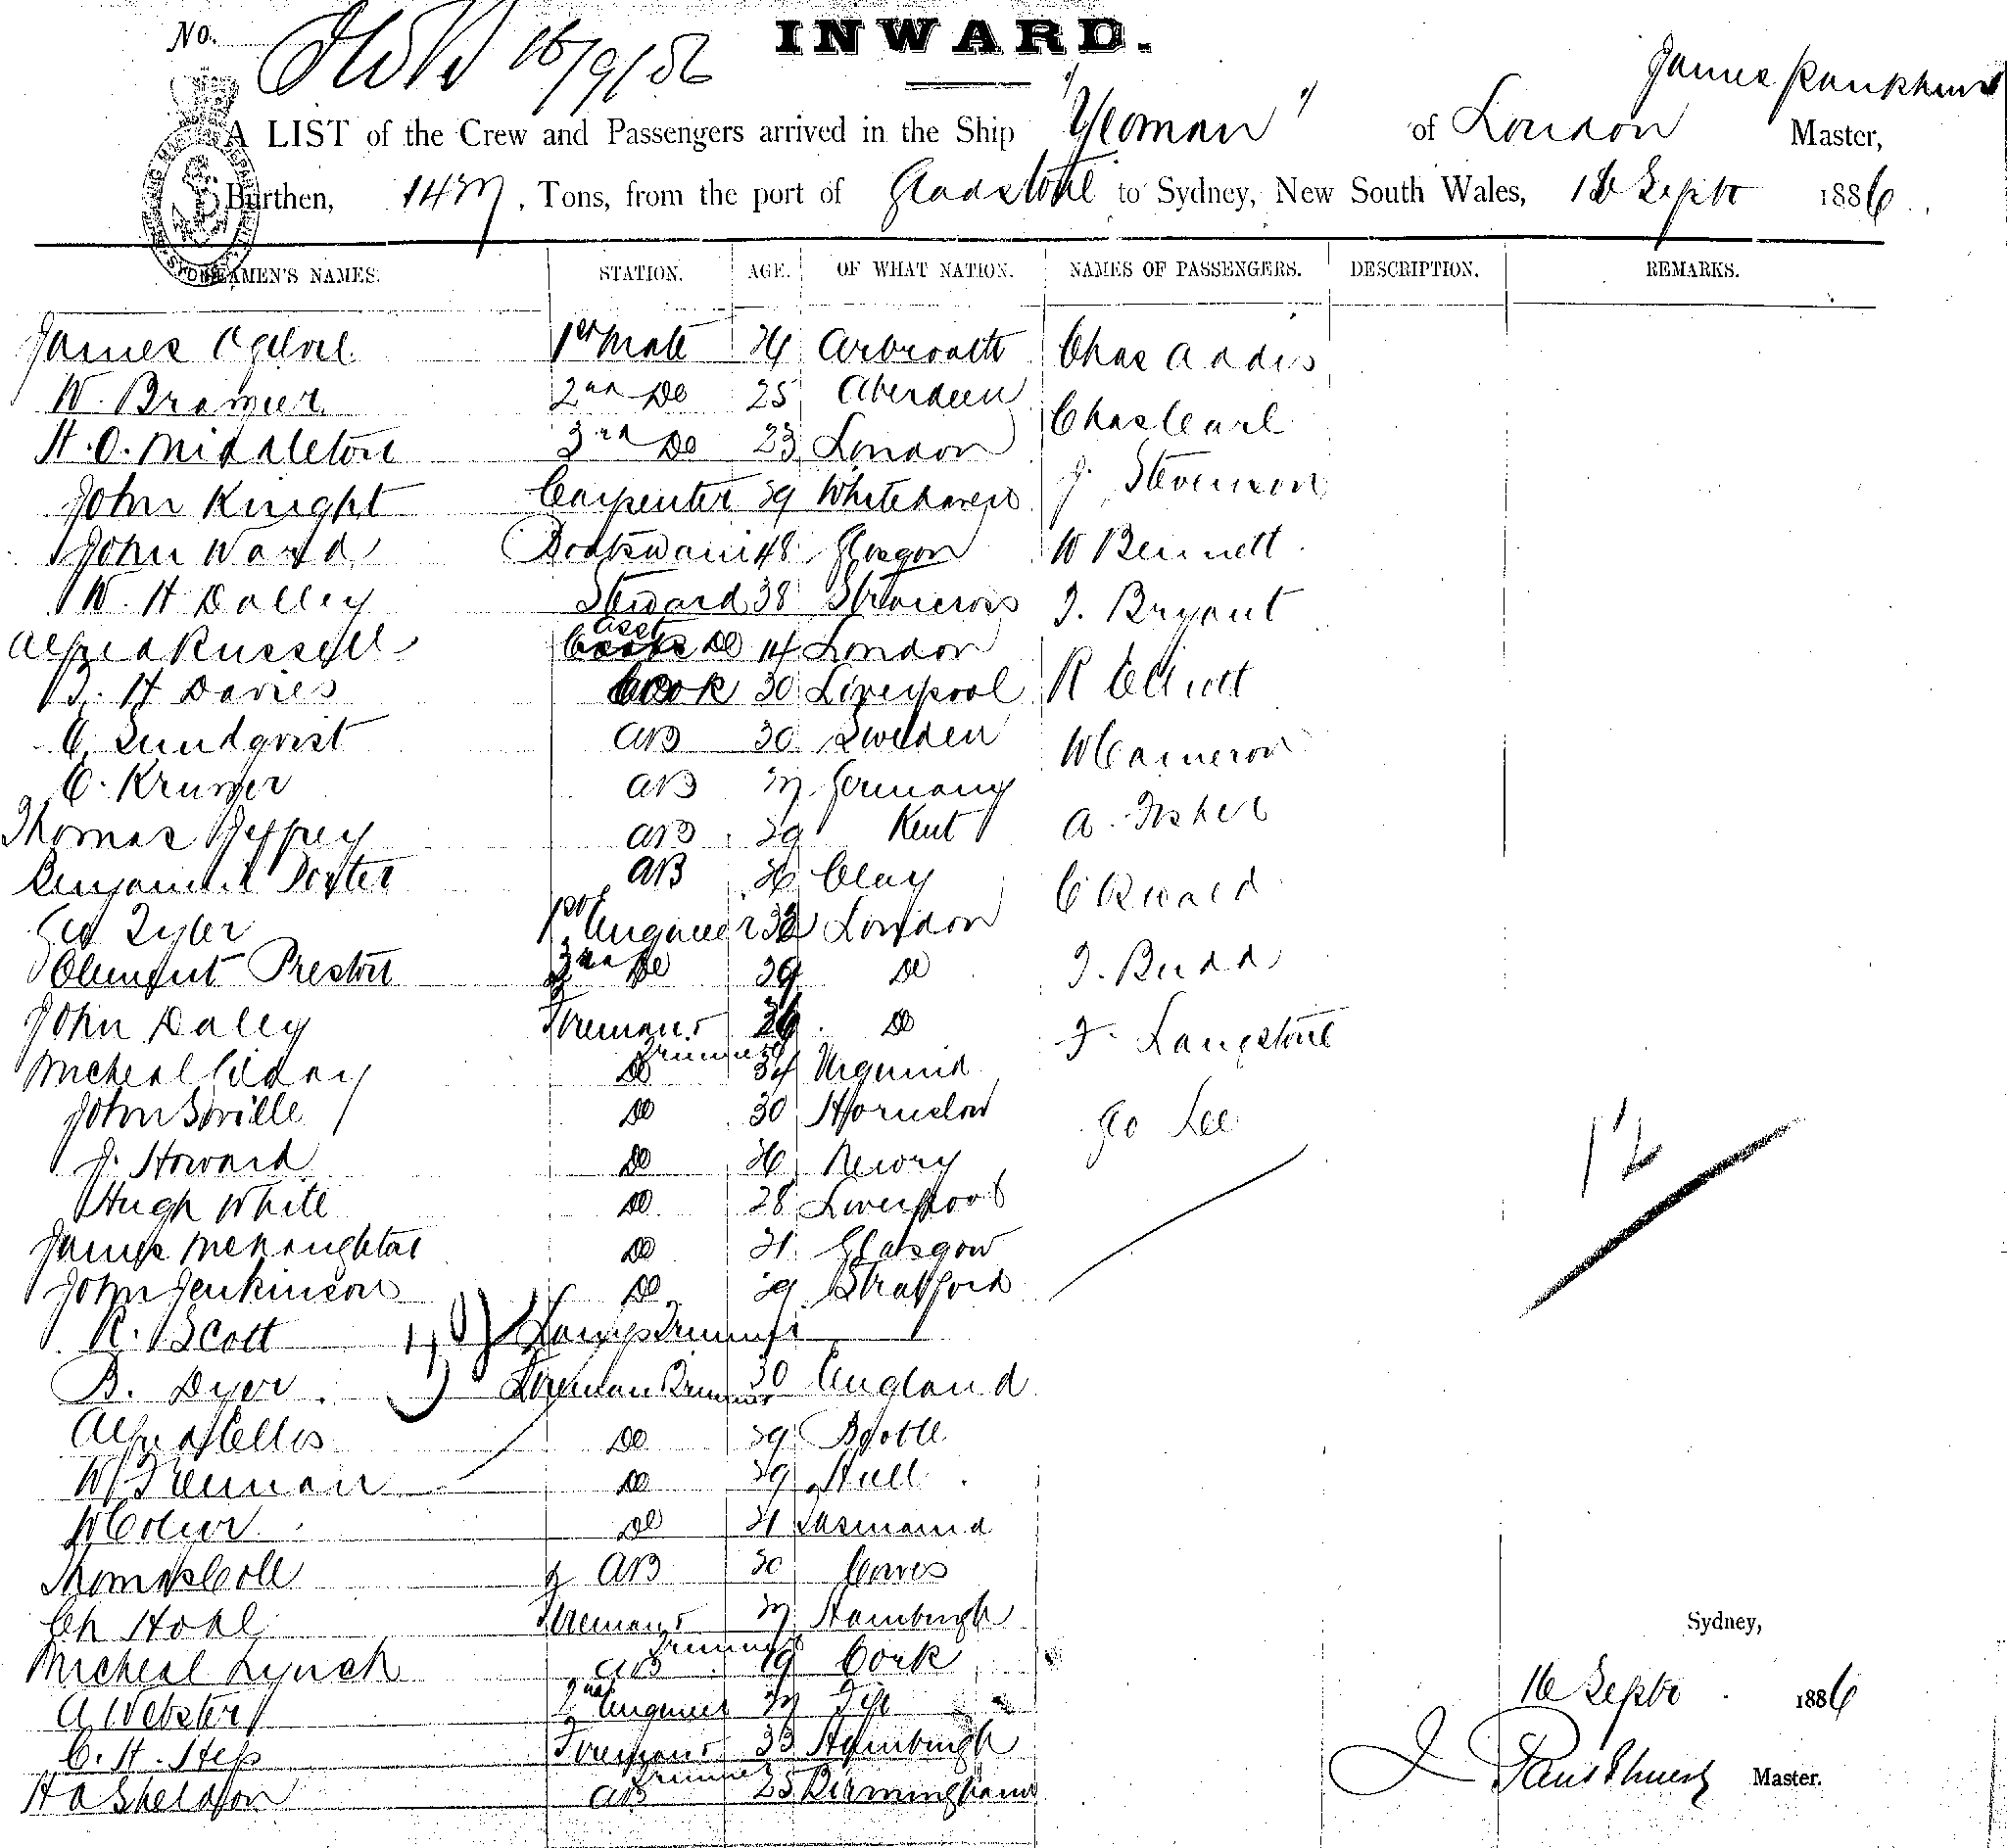 No. 16/9/86
INWARD.
James Pankhurst
A LIST of the Crew and Passengers arrived in the Ship "Yeoman" of London Master,
Burthen, Tons, from the port of Gladstone to Sydney, New South Wales, 16 Septr 1886
SEAMEN'S NAMES. STATION. AGE. OF WHAT NATION. NAMES OF PASSENGERS. DESCRIPTION. REMARKS.
James 1st Mate Arbroath Chas Addis
W. 2nd Do 25 Aberdeen Chas Carl
H. O. Middleton 3rd Do 23 London J. Stevenson
John Knight Carpenter 39 Whitehaven
John Ward Boatswain 48 Glasgow W Bennett
W. H Dalley Steward 38 J. Bryant
Alfred Russell Asst Do 14 London
J. H Davies Cook 30 Liverpool R Elliott
C. Sundqvist AB 30 Sweden W Cameron
C. Kruger AB Germany
Thomas Jeffrey AB 29 Kent A. Fisher
Benjamin Porter AB 26 Clay C
Geo Tyler 1st Engineer 32 London
Clement Preston 3rd Do 39 Do J. Budd
John Daley Fireman & Trimmer Do F. Langstone
Micheal Do 34
John Saville Do 30 Hornslow Geo Lee
J. Howard Do 26 Newry 12
Hugh White Do 28 Liverpool
James McNaughton Do 21 Glasgow
John Jenkinson Do 29 Stratford
R. Scott Lamp Trimmer
B. Dyer Fireman Trimmer 30 England
Alfred Ellis Do 29 Bootle
W Freeman Do 29 Hull
W Do 21 Tasmania
Thomas Cole AB 30 Cowes
Ch Hohl Fireman & Trimmer Hamburgh
Micheal Lynch AB 19 Cork
A Webster 2nd Engineer Fife
C. H. Fireman & Trimmer 33 Hamburgh
H A Sheldon AB 25 Birmingham
Sydney,
16 Septr 1886
J Pankhurst Master.